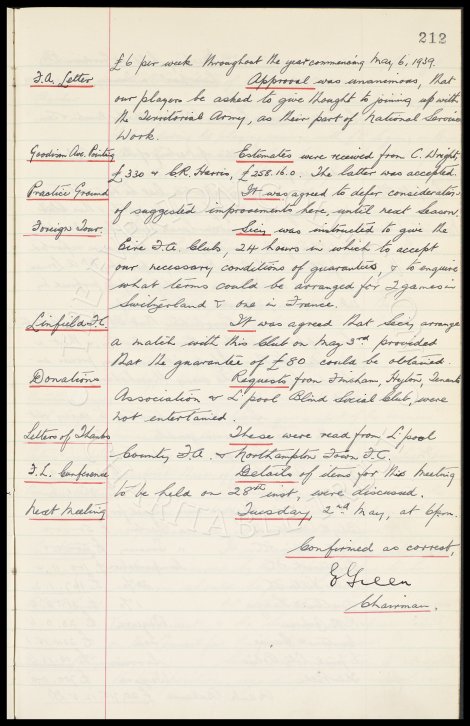 212
£6 per week throughout the year commencing May 6, 1939.
F.A. Letter Approval was unanimous, that
our players be asked to give thought to joining up with
the Territorial Army, as their part of National Service
Work.
Goodison Ave. Painting Estimates were received from C. Wright,
£330 & C.R. Harris, £258.16.0. The latter was accepted.
Practice Ground It was agreed to defer consideration
of suggested improvements here, until next Season.
Foreign Tour. Secy. was instructed to give the
Eire F.A. Clubs, 24 hours in which to accept
our necessary conditions of guarantees, & to enquire
what terms could be arranged for 2 games in
Switzerland & one in France.
Linfield F.C. It was agreed that Secy. arrange
a match with this Club on May 3rd provided
that the guarantee of £80 could be obtained.
Donations Requests from Huyton, Tenants
Association & L'pool Blind Social Club, were
not entertained.
Letters of Thanks These were read from L'pool
County F.A. & Northampton Town F.C.
F.L. Conference Details of items for this Meeting
to be held on 28th inst, were discussed.
Next Meeting Tuesday, 2nd May, at 6pm.
Confirmed as correct,
Green
Chairman.